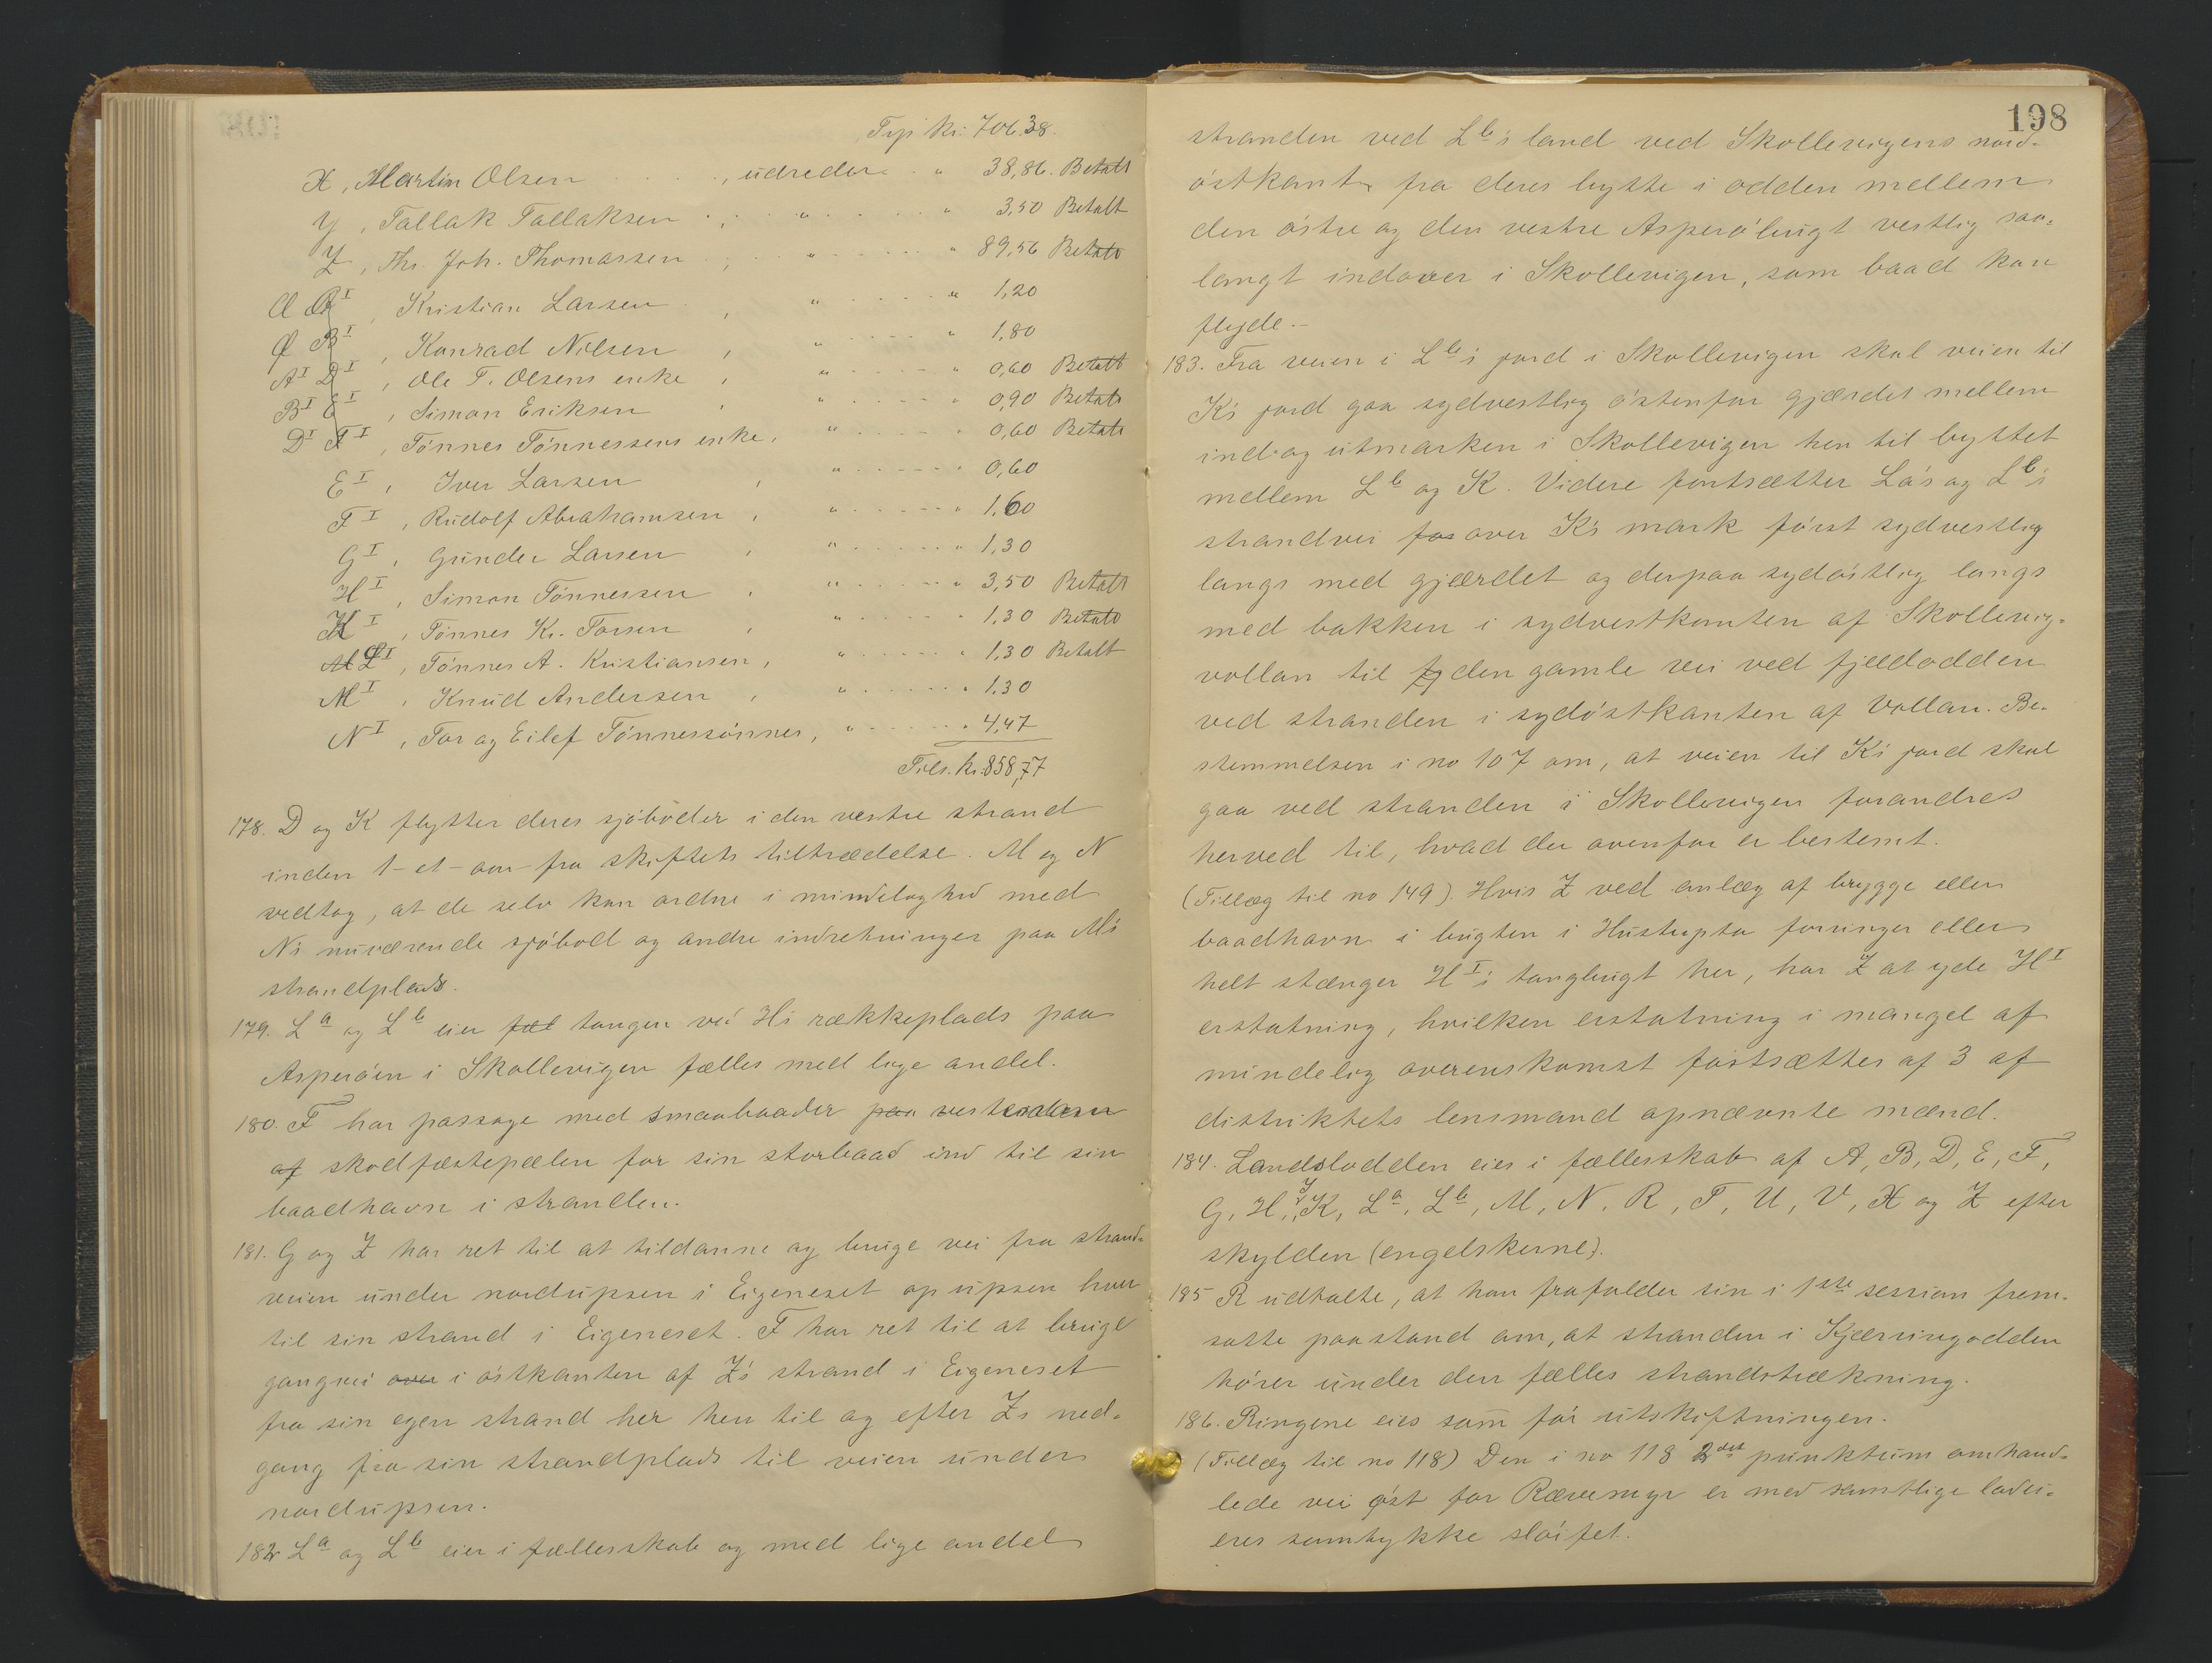 Trp kr. 706.38.
X, Martin Olsen . . . . , udreder . . " 38,86. Betalt
Y, Tallak Tallaksen . , . . " . . . . . " 3,50 Betalt
Z, Ths. Joh. Thomassen . , . . " . . . . . " 89,56 Betalt
Kristian Larsen , " . . . . " 1,20
Konrad Nilsen , " . . . . " 1,80
A I D I, Ole T. Olsens enke , " . . . . " 0,60 Betalt
B I E I, Simon Eriksen , " . . . . " 0,90 Betalt
D I F I, Tönnes Tönnessens enke, " . . . . " 0,60 Betalt
E I, Iver Larsen , " . . . . " 0,60
F I, Rudolf Abrahamsen , " . . . . " 1,60
G I, Gunder Larsen , " . . . . " 1,30
H I, Simon Tönnessen , " . . . . " 3,50 Betalt
K I, Tönnes Kr. Torsen , " . . . . " 1,30 Betalt
L I, Tönnes A. Kristiansen, " . . . . " 1,30 Betalt
M I, Knud Andersen , " . . . . " 1,30
N I, Tor og Eilef Tönnessönner, " . . . . " 4,47
Tils. kr. 858,77
178. D og K flytter deres sjöboder i den vestre strand
inden 1 - et - aar fra skiftets tiltrædelse. M og N
vedtog, at de selv kan ordne i mindelighed med
N's nuværende sjöbod og andre indretninger paa M's
strandplads.
179. La og Lb eier fæl tangen ved H's rækkeplads paa
Asperöen i Skollevigen fælles med lige andel.
180. F har passage med smaabaader paa vestendom
af skodfæstepælen for sin storbaad ind til sin
baadhavn i stranden.
181. G og Z har ret til at tildanne og bruge vei fra strand-
veien under nordupsen i Eigeneset op upsen hver
til sin strand i Eigeneset. F har ret til at bruge
gangvei over i östkanten af Z's strand i Eigeneset
fra sin egen strand her hen til og efter Z's ned-
gang fra sin strandplads til veien under
nordupsen.
182 La og Lb eier i fællesskab og med lige andel
198
stranden ved Lb's land ved Skollevigens nord-
östkant fra deres bytte i odden mellem
den östre og den vestre Asperöbugt vestlig saa-
langt indover i Skollevigen, som baad kan
flyde.-
183. Fra veien i Lb's jord i Skollevigen skal veien til
K's jord gaa sydvestlig östenfor gjærdet mellem
ind- og utmarken i Skollevigen hen til byttet
mellem Lb og K. Videre fortsætter La's og Lb's
strandvei for over K's mark först sydvestlig
langs med gjærdet og derpaa sydöstlig langs
med bakken i sydvestkanten af Skollevig-
vollan til den gamle vei ved fjeldodden
ved stranden i sydöstkanten af Vollan. Be-
stemmelsen i no 107 om, at veien til K's jord skal
gaa ved stranden i Skollevigen forandres
herved til, hvad der ovenfor er bestemt.
(Tillæg til no 149). Hvis Z ved anlæg af brygge eller
baadhavn i bugten i Hustupta forringer eller
helt stænger H I's tangbugt her, har Z at yde H I
erstatning, hvilken erstatning i mangel af
mindelig overenskomst fastsættes af 3 af
distriktets lensmand opnævnte mænd.
184. Landslodden eies i fællesskab af A, B, D, E, F,
G, H, J, K, La, Lb, M, N, R, T, U, V, X og Z efter
skylden (engelskerne).
185 R udtalte, at han frafalder sin i 1ste session frem-
satte paastand om, at stranden i Kjærringodden
hörer under den fælles strandstrækning.
186. Ringene eies som för utskiftningen.
(Tillæg til no 118) Den i no 118 2det punktum omhand-
lede vei öst for Rævemyr er med samtlige lodsei-
eres samtykke slöifet.